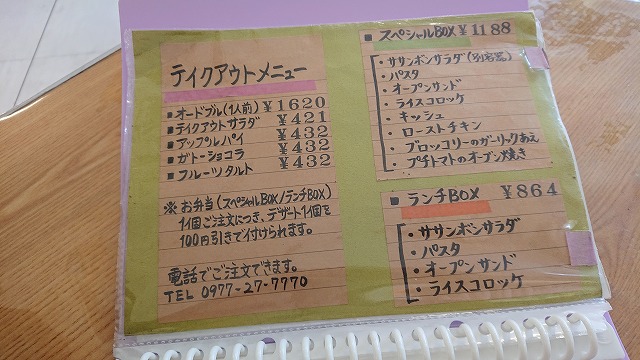 テイクアウトメニュー
■ オードブル(1人前) ¥1620
■ テイクアウトサラダ ¥421
■ アップルパイ ¥432
■ ガトーショコラ ¥432
■ フルーツタルト ¥432
※ お弁当(スペシャルBOX/ランチBOX)
1個ご注文につき、デザート1個を
100円引きで付けられます。
電話でご注文できます。
TEL 0977-27-7770
■ スペシャルBOX ¥1188
・ササンボンサラダ(別容器)
・パスタ
・オープンサンド
・ライスコロッケ
・キッシュ
・ローストチキン
・ブロッコリーのガーリックあえ
・プチトマトのオーブン焼き
■ ランチBOX ¥864
・ササンボンサラダ
・パスタ
・オープンサンド
・ライスコロッケ